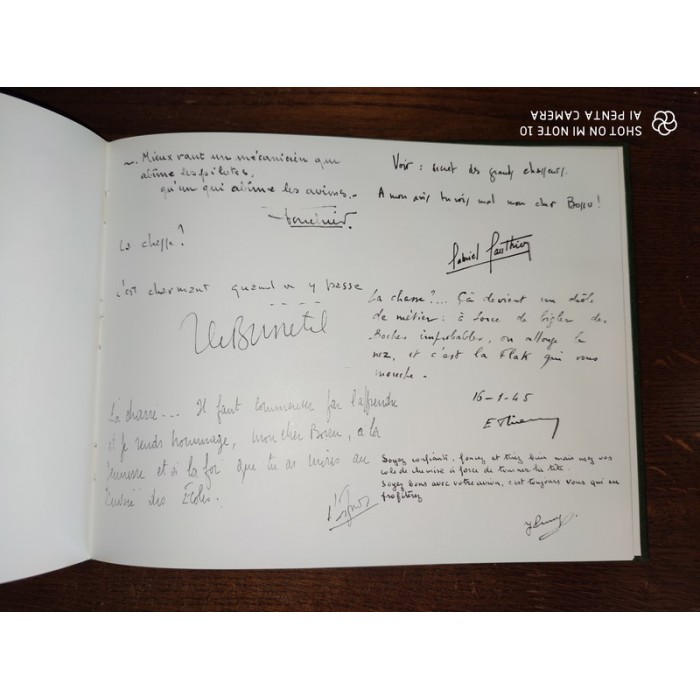 Mieux vaut un mécanicien que
abîme les pilotes,
qu'un qui abîme les avions.
La chasse?
c'est charmant quand on y passe
La chasse... Il faut commencer par l'apprendre
et je rends hommage, mon cher à la
jeunesse et à la foi que tu as mises au
des Écoles.
Voir: secret des grands chasseurs.
A mon avis tu vois mal mon cher Bosso!
Gabriel Gauthier
La chasse?... Çà devient un drôle
de métier: à force de bigler des
Boches improbables, on allonge le
nez, et c'est la Flak qui vous
mouche.
16-1-45
Soyez confiants, foncez et tirez bien mais usez vos
cols de chemise à force de tourner la tête.
Soyez bons avec votre avion, c'est toujours vous qui en
profiterez
SHOT ON MI NOTE 10
AI PENTA CAMERA